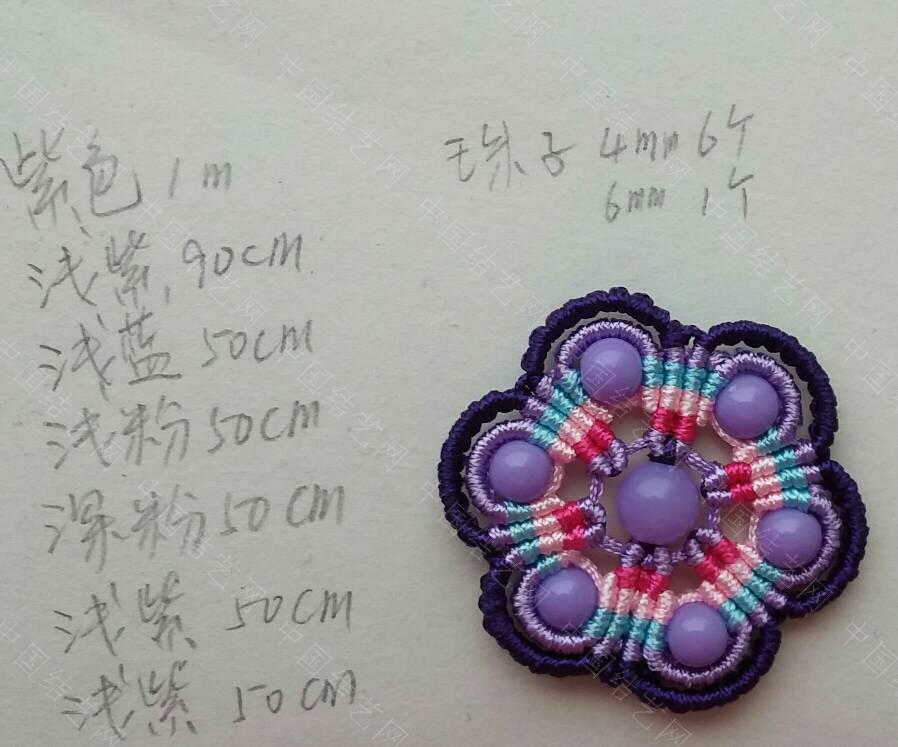 紫色 1m
浅紫 90cm
浅蓝 50cm
浅粉 50cm
深粉 50cm
浅紫 50cm
浅紫 50cm
珠子 4mm 6个
6mm 1个
中国结艺网